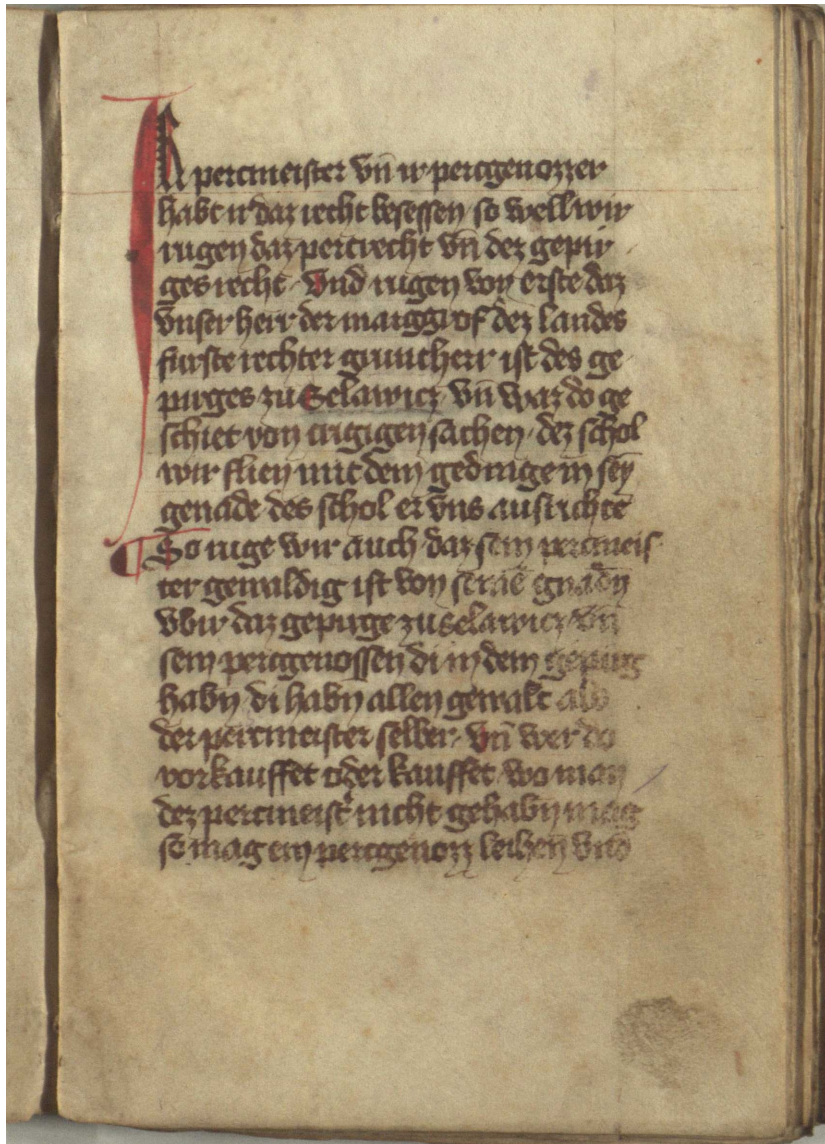 IR percmeister vn̄ ir percgenozzer
habt ir daz recht besessen so well wir
rugen daz percrecht vn̄ dez gepir
ges recht · Vnd rugen von erste daz
vnser herr der marggrof dez landes
furste rechter gruntherr ist des ge
pirges zu Selawicz vn̄ waz do ge
schiet von sachen dez schol
wir flien mit dem gedinge in sey
genade des schol er vns ausrichte
¶ So ruge wir auch daz sein percmeis
ter gewaldig ist von seinē gnadn̄
vbir daz gepirge zu Selawicz vn̄
sein percgenossen di in dem gepirg
habn̄ di habn̄ allen gewalt als
der percmeister selber · vn̄ wer do
vorkauffet oder kauffet wo man
dez percmeist̉ nicht gehabn̄ mag
so mag ein percgenozz leihen vnd